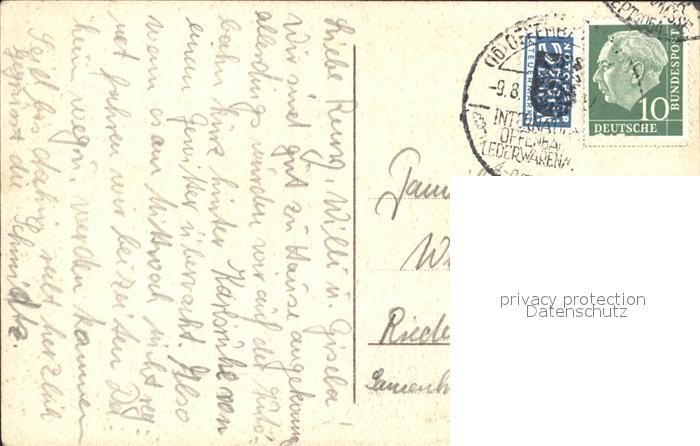 Liebe Renz, Willi u. Gisela!
Wir sind gut zu Hause angekomm
allerdings wurden wir auf der Auto-
bahn kurz hinter Karlsruhe von
einem Gewitter überrascht. Also
wenn es am Mittwoch nicht reg-
net fahren wir bei zeiten
hin wegen werden kommen
Seid bis dahin recht herzlich
gegrüsst die Schmidtz.
(16) OFFENBA
-9.8.
INTERNAT.
OFFENBA
LEDERWARENM
NOTOPFER
2 BERLIN
STEUERMARKE
10
DEUTSCHE
BUNDESPOST
Fam
W
Riede
privacy protection
Datenschutz